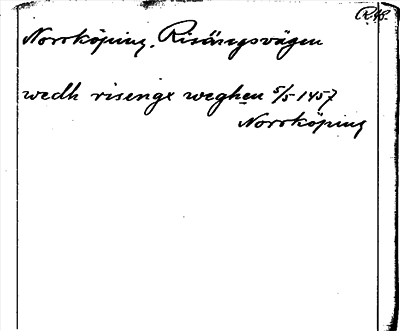 R.43.
Norrköping. Risängsvägen
wedh risengx weghen 5/5 1457
Norrköping